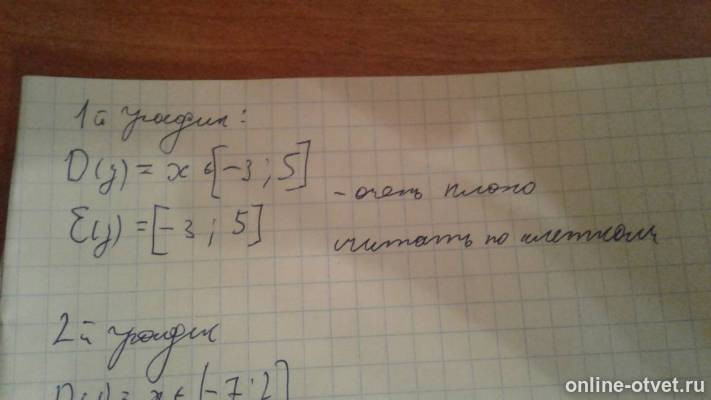 1й график:
D(y) = x ∈ [-3; 5]
- очень плохо
E(y) = [-3; 5]
считать по клеткам
2й график
D(y) = x ∈ [-7; 2]
online-otvet.ru